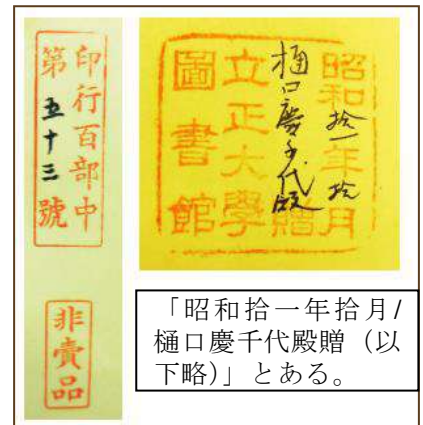 印行百部中
第五十三號
非賣品
昭和拾一年拾月
樋口慶千代殿贈
立正大學
圖書館
「昭和拾一年拾月/
樋口慶千代殿贈（以
下略)」とある。